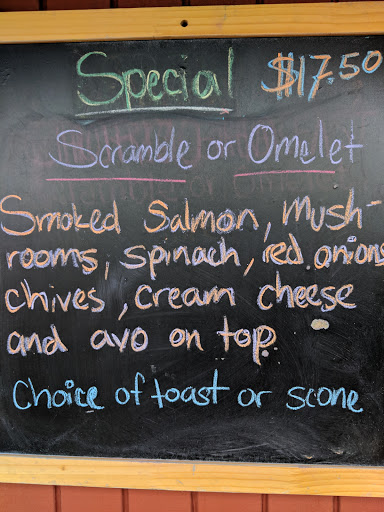 Special $17.50
Scramble or Omelet
Smoked Salmon, Mush-
rooms, spinach, red onions
chives, cream cheese
and avo on top.
Choice of toast or scone